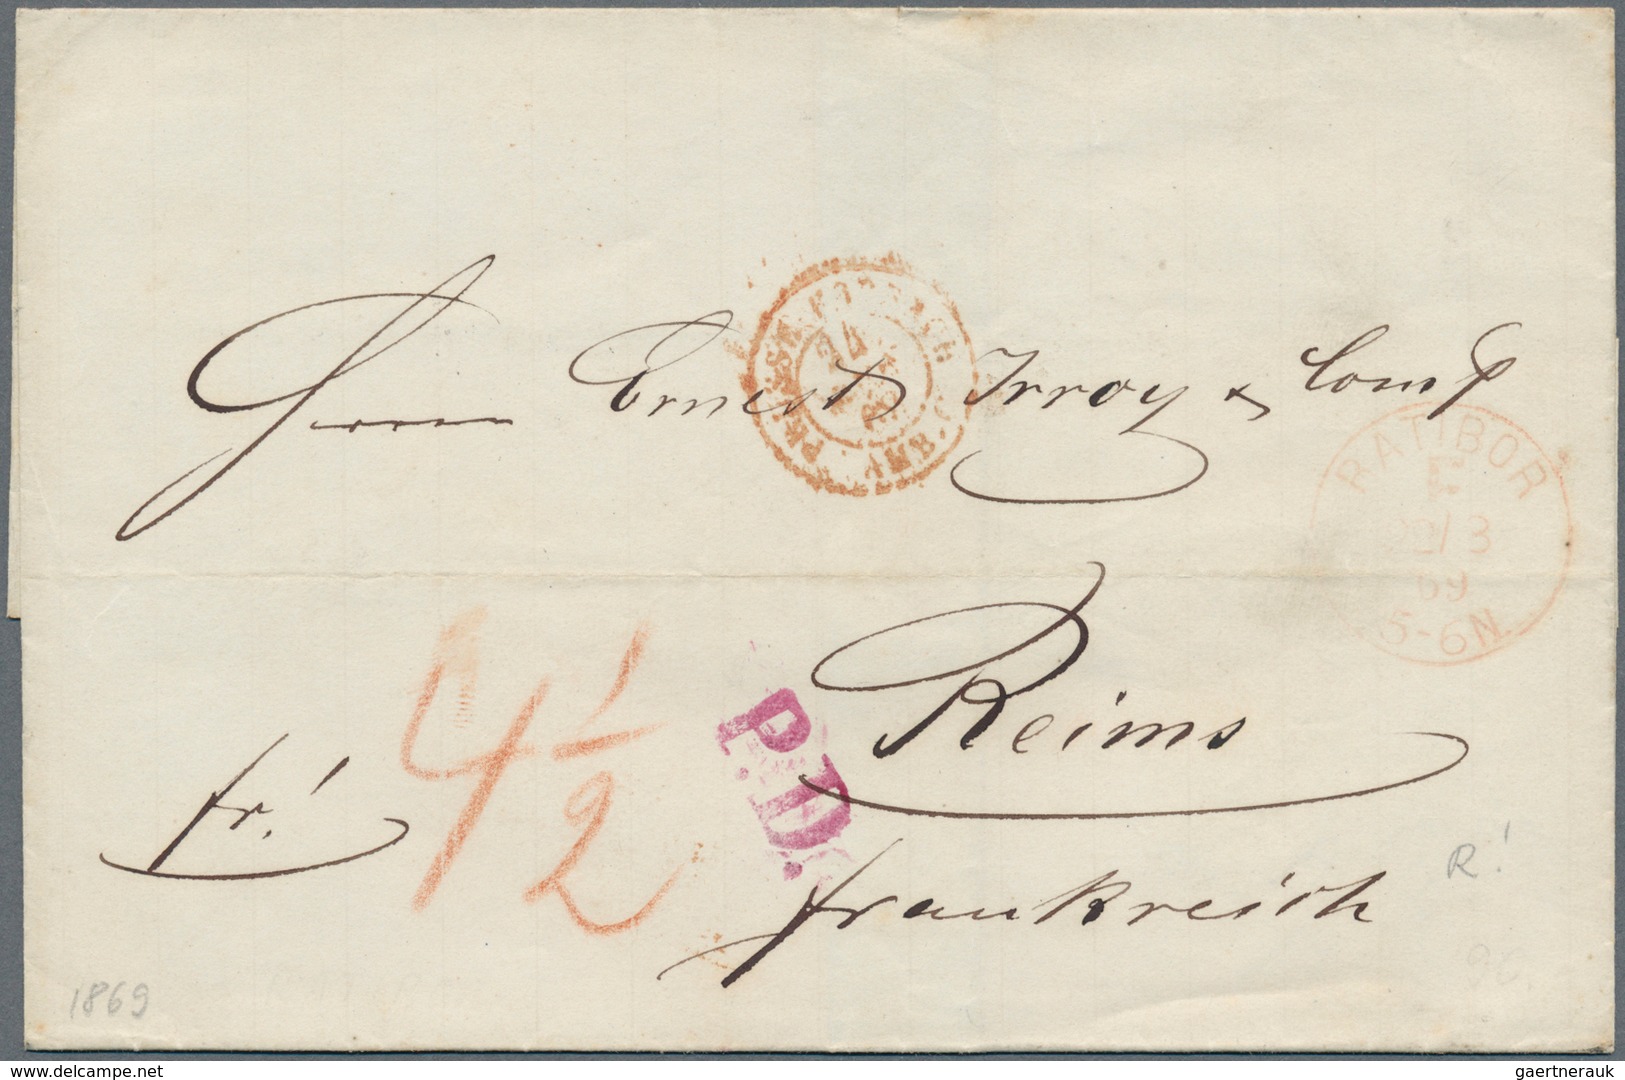 Herrn Ernest Irroy & Comp
24
RATIBOR
F
22/3
69
5-6N
Reims
fr!
4 1/2
P.D.
Frankreich
R!
1869
delcampe.net
gaertnerauk